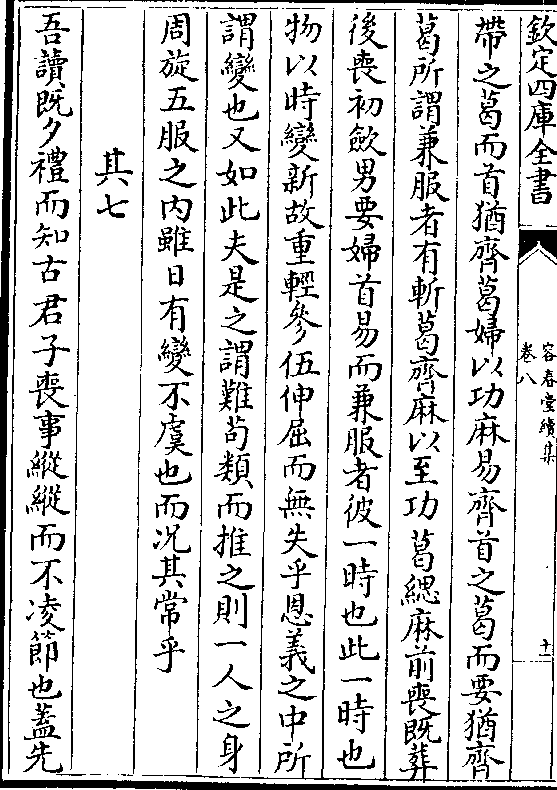 欽定四庫全書
容春堂續集
卷八
十一
帶之葛而首猶齊葛婦以功麻易齊首之葛而要猶齊
葛所謂兼服者有斬葛齊麻以至功葛緦麻前喪既葬
後喪初斂男要婦首易而兼服者彼一時也此一時也
物以時變新故重輕參伍伸屈而無失乎恩義之中所
謂變也又如此夫是之謂難茍類而推之則一人之身
周旋五服之內雖日有變不虞也而况其常乎
其七
吾讀既夕禮而知古君子喪事縱縱而不凌節也蓋先